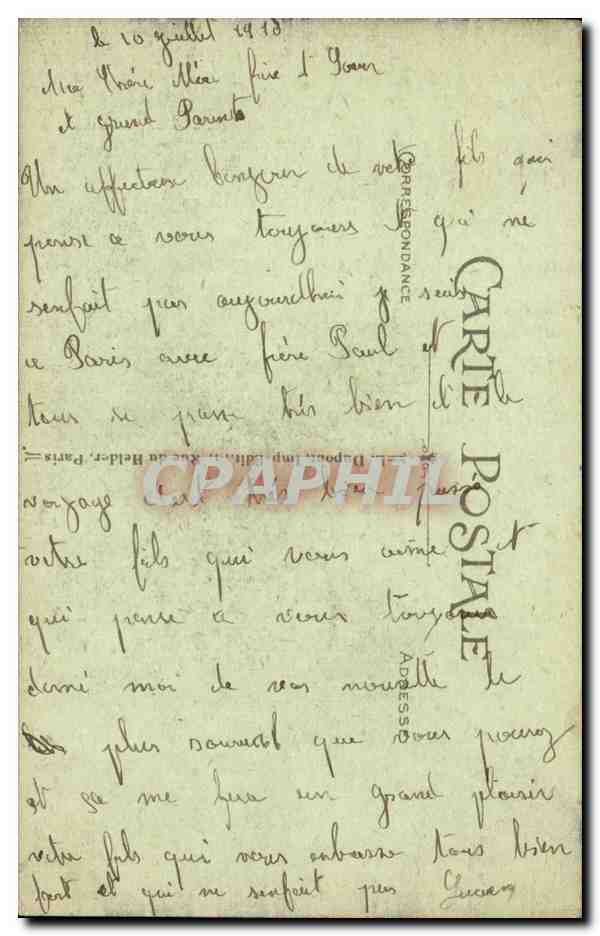 le 10 juillet 1918
Ma Chére Mére frére et Soeur
et grand Parent
Un affectueux bonjour de votre fils qui
pense a vous toujours et qui ne
senfait pas aujourdhui je suis
a Paris avec frére Paul et
tous se passe trés bien et le
voyage sais trés bien passé
votre fils qui vous aime et
qui pense a vous toujours
doné moi de vos nouvelle le
plus souvent que vous pouroz
et ça me fera un grand plaisir
votre fils qui vous enbrasse tous bien
fort et qui ne senfait pas Lucien
CORRESPONDANCE
CARTE POSTALE
ADRESSE
L. Dupont, Imp.-Edit., Rue du Helder, Paris
CPAPHIL